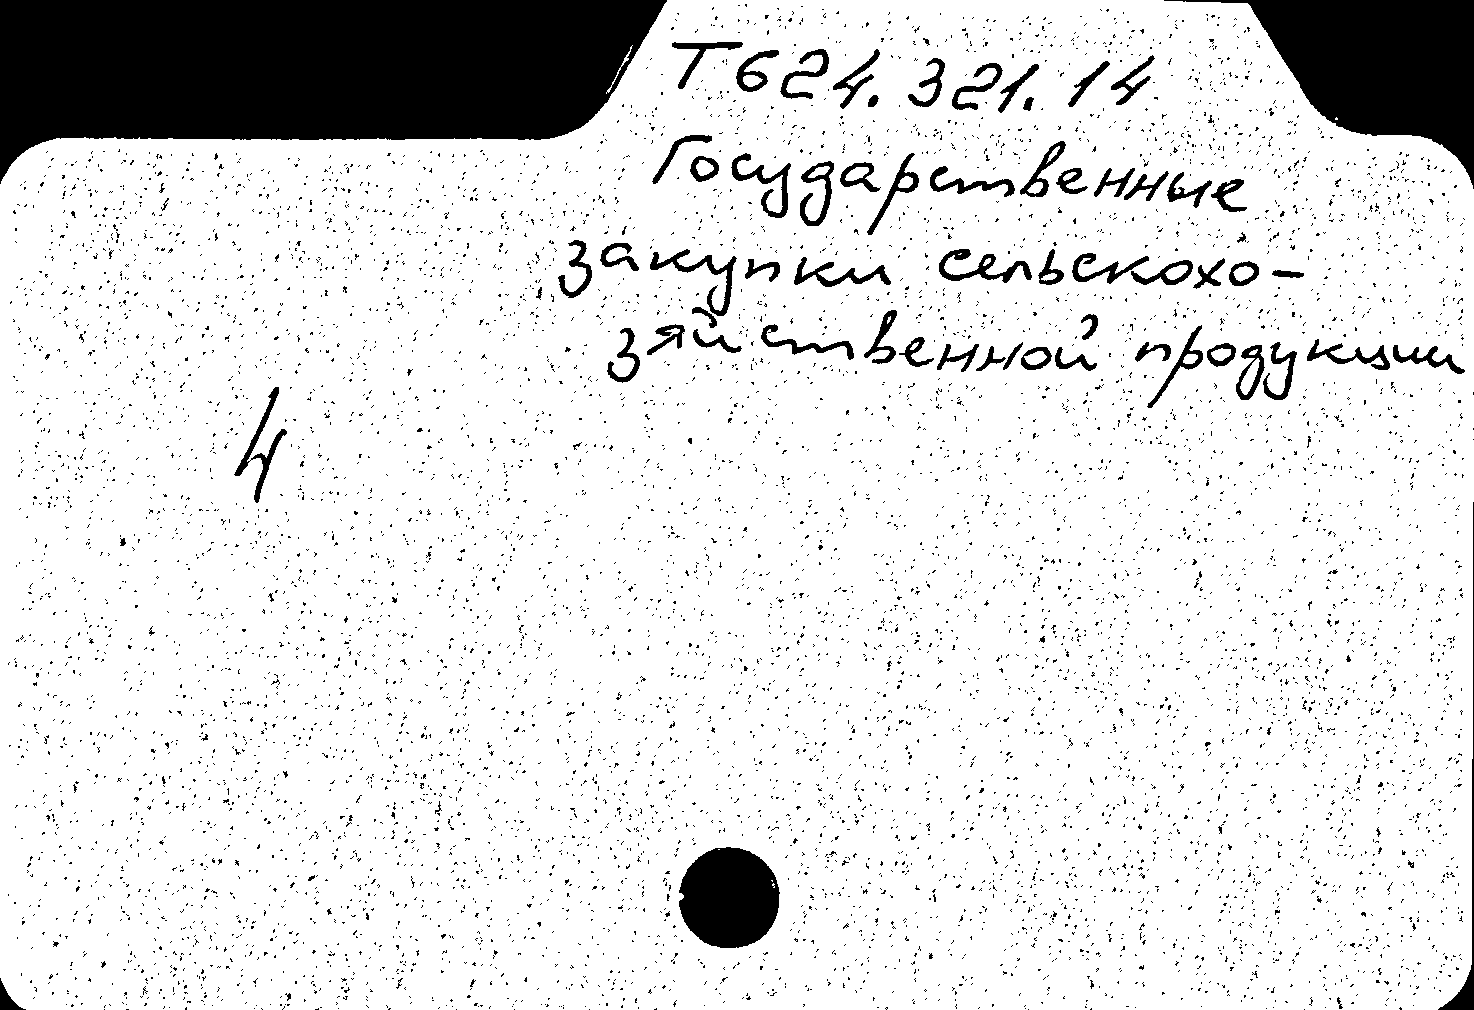 Т624.321.14
Государственные
закупки сельскохо-
зяйственной продукции
4